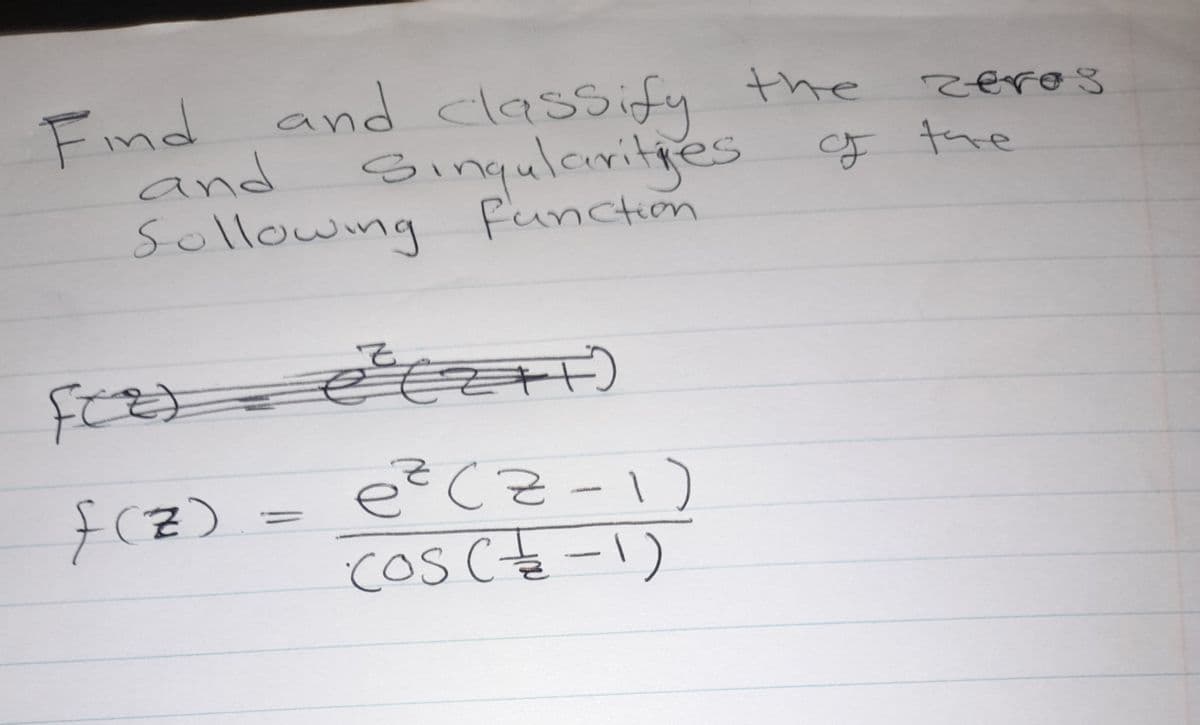 Find and classify the zeros
and singularities of the
following function
f(z) = e^z (z+1)
f(z) = e^z (z-1)
cos(1/z -1)